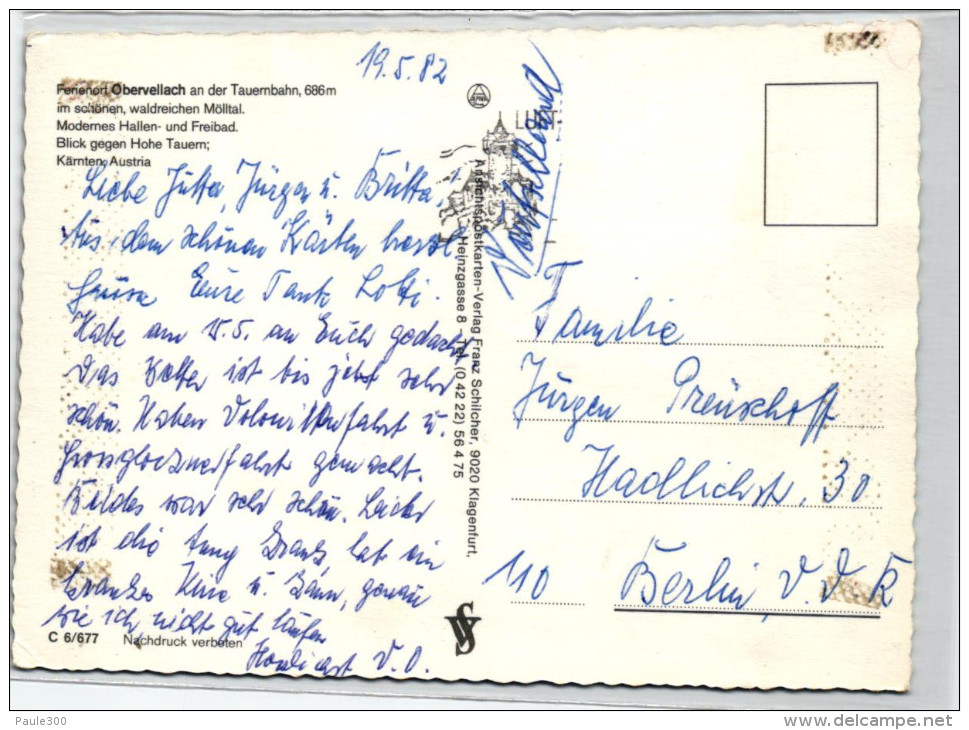 19.5.82
Ferienort Obervellach an der Tauernbahn, 686m
im schönen, waldreichen Mölltal.
Modernes Hallen- und Freibad.
Blick gegen Hohe Tauern;
Kärnten, Austria
Liebe Jutta, Jürgen u. Britta,
Aus dem schönen Kärten herzl
Grüsse Eure Tante Lotti.
Habe am 15.5. an Euch gedacht
Das Wetter ist bis jetzt sehr
schön. Haben Dolomittenfahrt u.
Grossglocknerfahrt gemacht.
Beides war sehr schön. Leider
ist die krank, hat ein
krankes Knie u. kann, genau
wie ich nicht gut laufen
V. O.
C 6/677 Nachdruck verboten
Ansichtspostkarten-Verlag Franz Schilcher, 9020 Klagenfurt,
Heinzgasse 8 Tel. (0 42 22) 56 4 75
LUFT
Familie
Jürgen Preuschoff
Hadlichstr. 30
110 Berlin, D.D.R
Paule300
www.delcampe.net